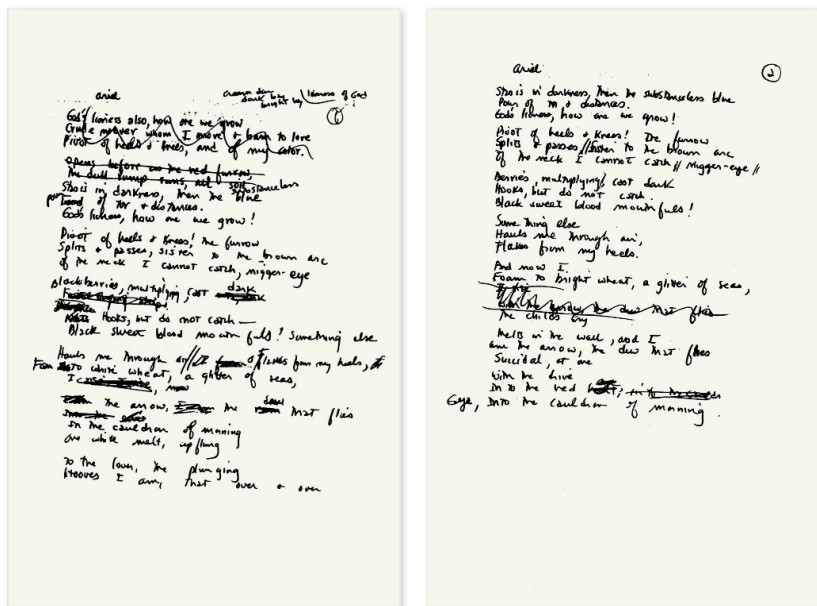 ariel
likeness of God
God's lioness also, how one we grow
Crude mover whom I move & burn to love
Pivot of heels & knees, and of my color.
opens before me the red furrow
The dull lump runs, all
Stasis in darkness, then the substanceless blue
of tor & distances.
God's lioness, how one we grow!
Pivot of heels & knees! The furrow
Splits & passes, sister to the brown arc
of the neck I cannot catch, nigger-eye
Blackberries, multiplying, cast dark
Hooks, but do not catch —
Black sweet blood mouthfuls! Something else
Hauls me through air // flakes from my heels,
Foam to white wheat, a glitter of seas,
I
the arrow, the dew that flies
in the cauldron of morning
one white melt, upflung
To the lover, the plunging
Hooves I am, that over & over
ariel
2
Stasis in darkness, then the substanceless blue
Pour of tor & distances.
God's lioness, how one we grow!
Pivot of heels & knees! The furrow
Splits & passes // sister to the brown arc
Of the neck I cannot catch // nigger-eye //
Berries, multiplying, cast dark
Hooks, but do not catch.
Black sweet blood mouthfuls!
Something else
Hauls me through air,
Flakes from my heels.
And now I
Foam to bright wheat, a glitter of seas,
am the arrow, the dew that flies
The child's cry
Melts in the wall, and I
am the arrow, the dew that flies
Suicidal, at one
with the drive
Into the red
Eye, Into the cauldron of morning.